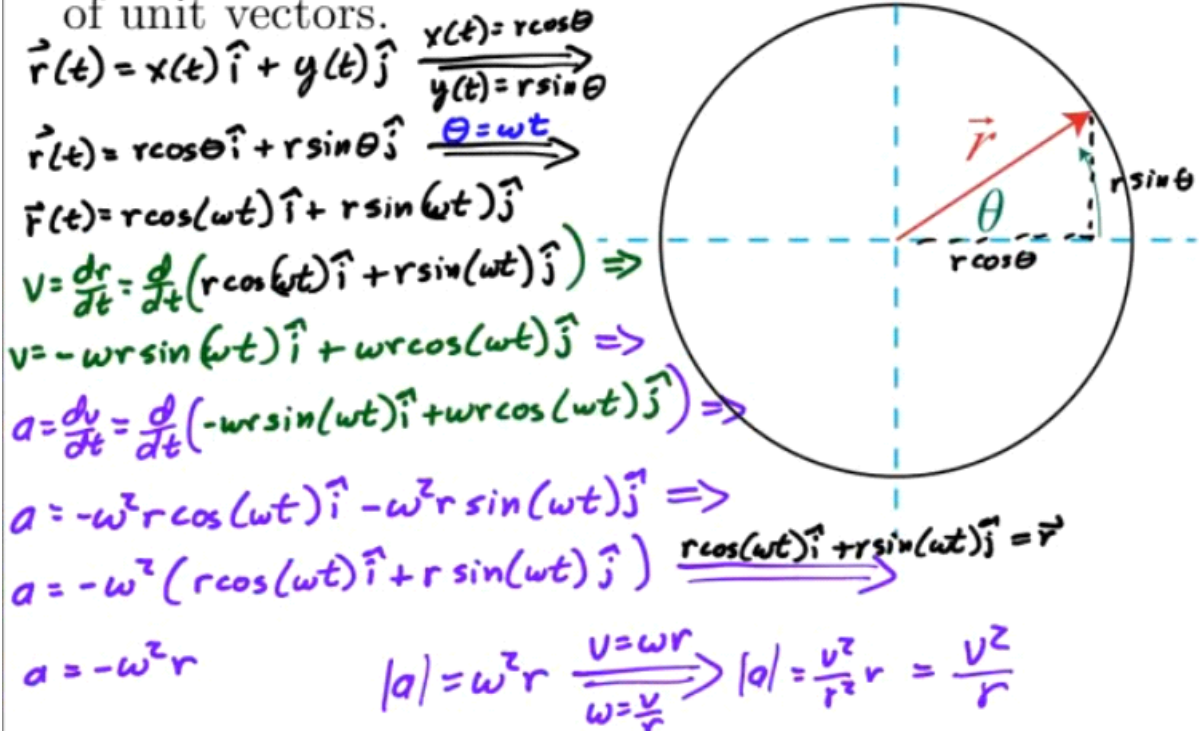 of unit vectors.
r⃗(t) = x(t) î + y(t) ĵ
x(t) = rcosθ
y(t) = rsinθ
r⃗(t) = rcosθ î + rsinθ ĵ
θ = ωt
r⃗(t) = rcos(ωt) î + rsin(ωt) ĵ
v = dr/dt = d/dt (rcos(ωt) î + rsin(ωt) ĵ) ⇒
v = -ωrsin(ωt) î + ωrcos(ωt) ĵ ⇒
a = dv/dt = d/dt (-ωrsin(ωt) î + ωrcos(ωt) ĵ) ⇒
a = -ω²rcos(ωt) î - ω²rsin(ωt) ĵ ⇒
a = -ω² (rcos(ωt) î + rsin(ωt) ĵ)
rcos(ωt) î + rsin(ωt) ĵ = r⃗
a = -ω²r
|a| = ω²r
v = ωr
ω = v/r
|a| = v²/r² r = v²/r
r⃗
θ
rsinθ
rcosθ